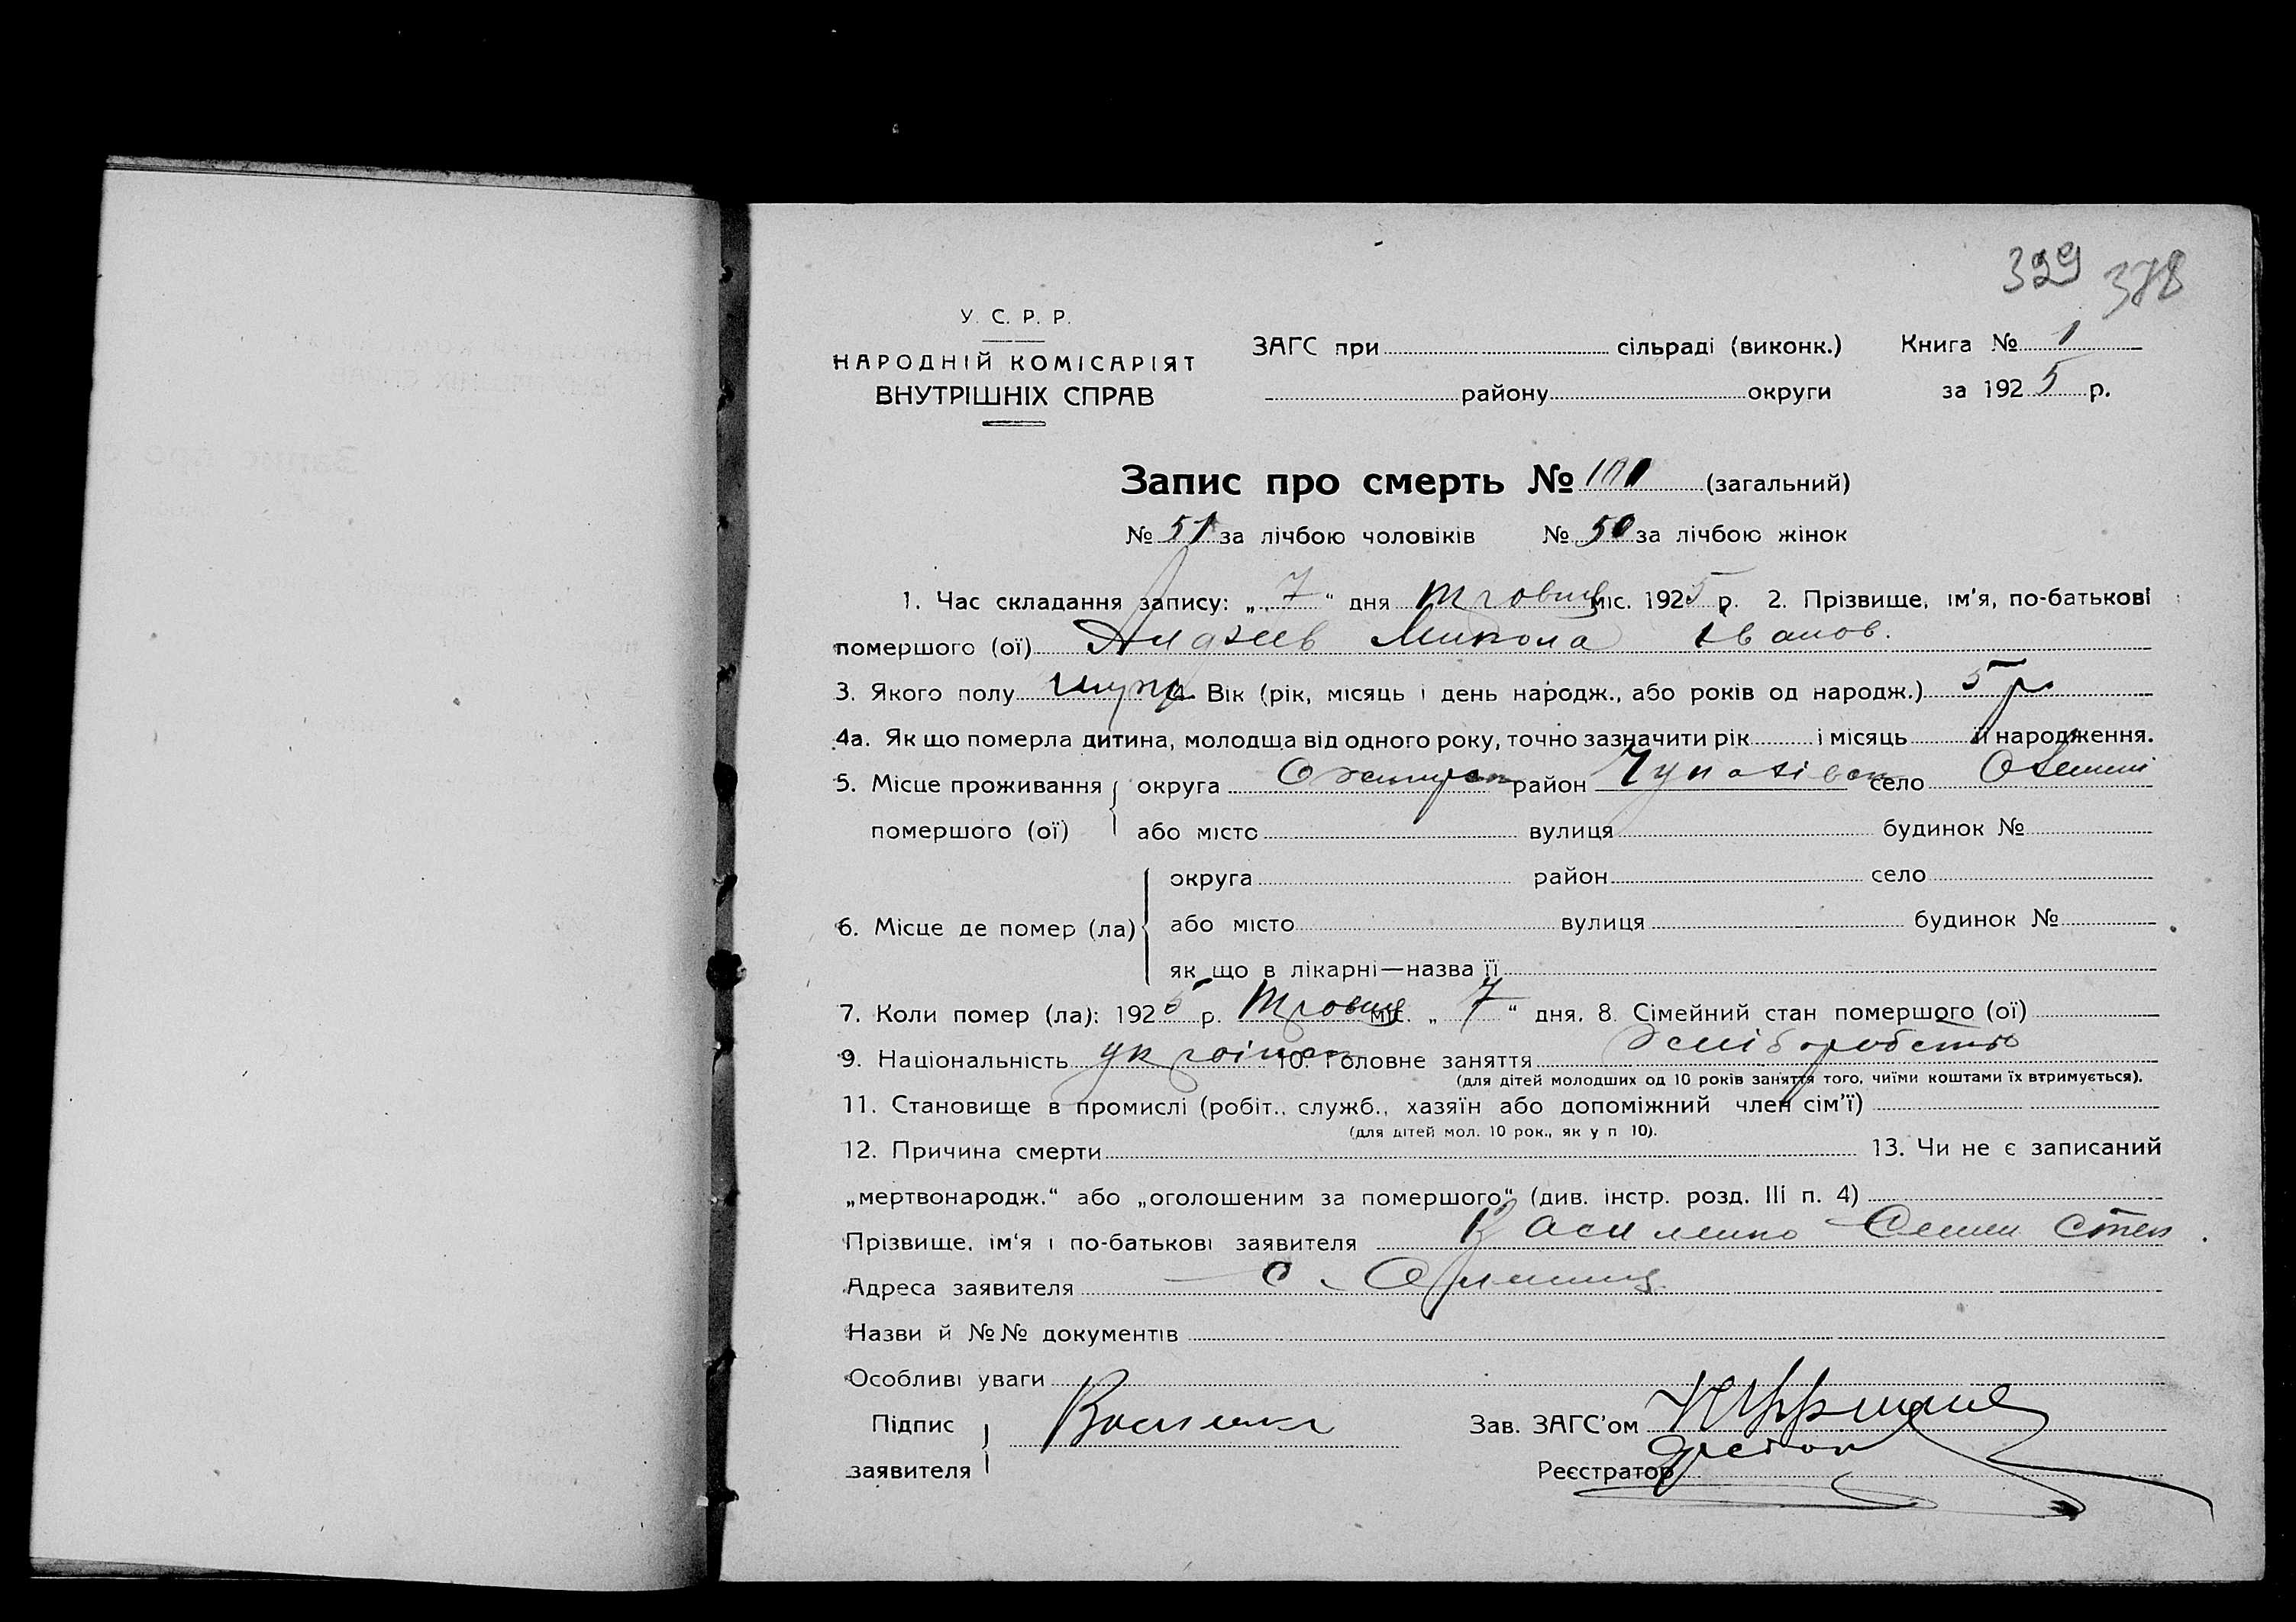 329 378
У. С. Р. Р.
НАРОДНІЙ КОМІСАРІЯТ
ВНУТРІШНІХ СПРАВ
ЗАГС при сільраді (виконк.)
району округи
Книга № 1
за 1925 р.
Запис про смерть № 101 (загальний)
№ 51 за лічбою чоловіків № 50 за лічбою жінок
1. Час складання запису: „ 7 “ дня міс. 1925 р. 2. Прізвище, ім'я, по-батькові
помершого (ої) Микола Іванов.
3. Якого полу Вік (рік, місяць і день народж., або років од народж.) 5 р
4а. Як що померла дитина, молодша від одного року, точно зазначити рік і місяць її народження.
5. Місце проживання округа район село
помершого (ої) або місто вулиця будинок №
округа район село
6. Місце де помер (ла) або місто вулиця будинок №
як що в лікарні—назва її
7. Коли помер (ла): 1925 р. міс. „ 7 “ дня. 8. Сімейний стан помершого (ої)
9. Національність 10. Головне заняття
(для дітей молодших од 10 років заняття того, чиїми коштами їх втримується).
11. Становище в промислі (робіт., служб., хазяїн або допоміжний член сім'ї)
(для дітей мол. 10 рок., як у п 10).
12. Причина смерти 13. Чи не є записаний
„мертвонародж.“ або „оголошеним за помершого“ (див. інстр. розд. III п. 4)
Прізвище, ім'я і по-батькові заявителя Василенко Семен Степ
Адреса заявителя с.
Назви й №№ документів
Особливі уваги
Підпис
заявителя
Зав. ЗАГС'ом
Реєстратор